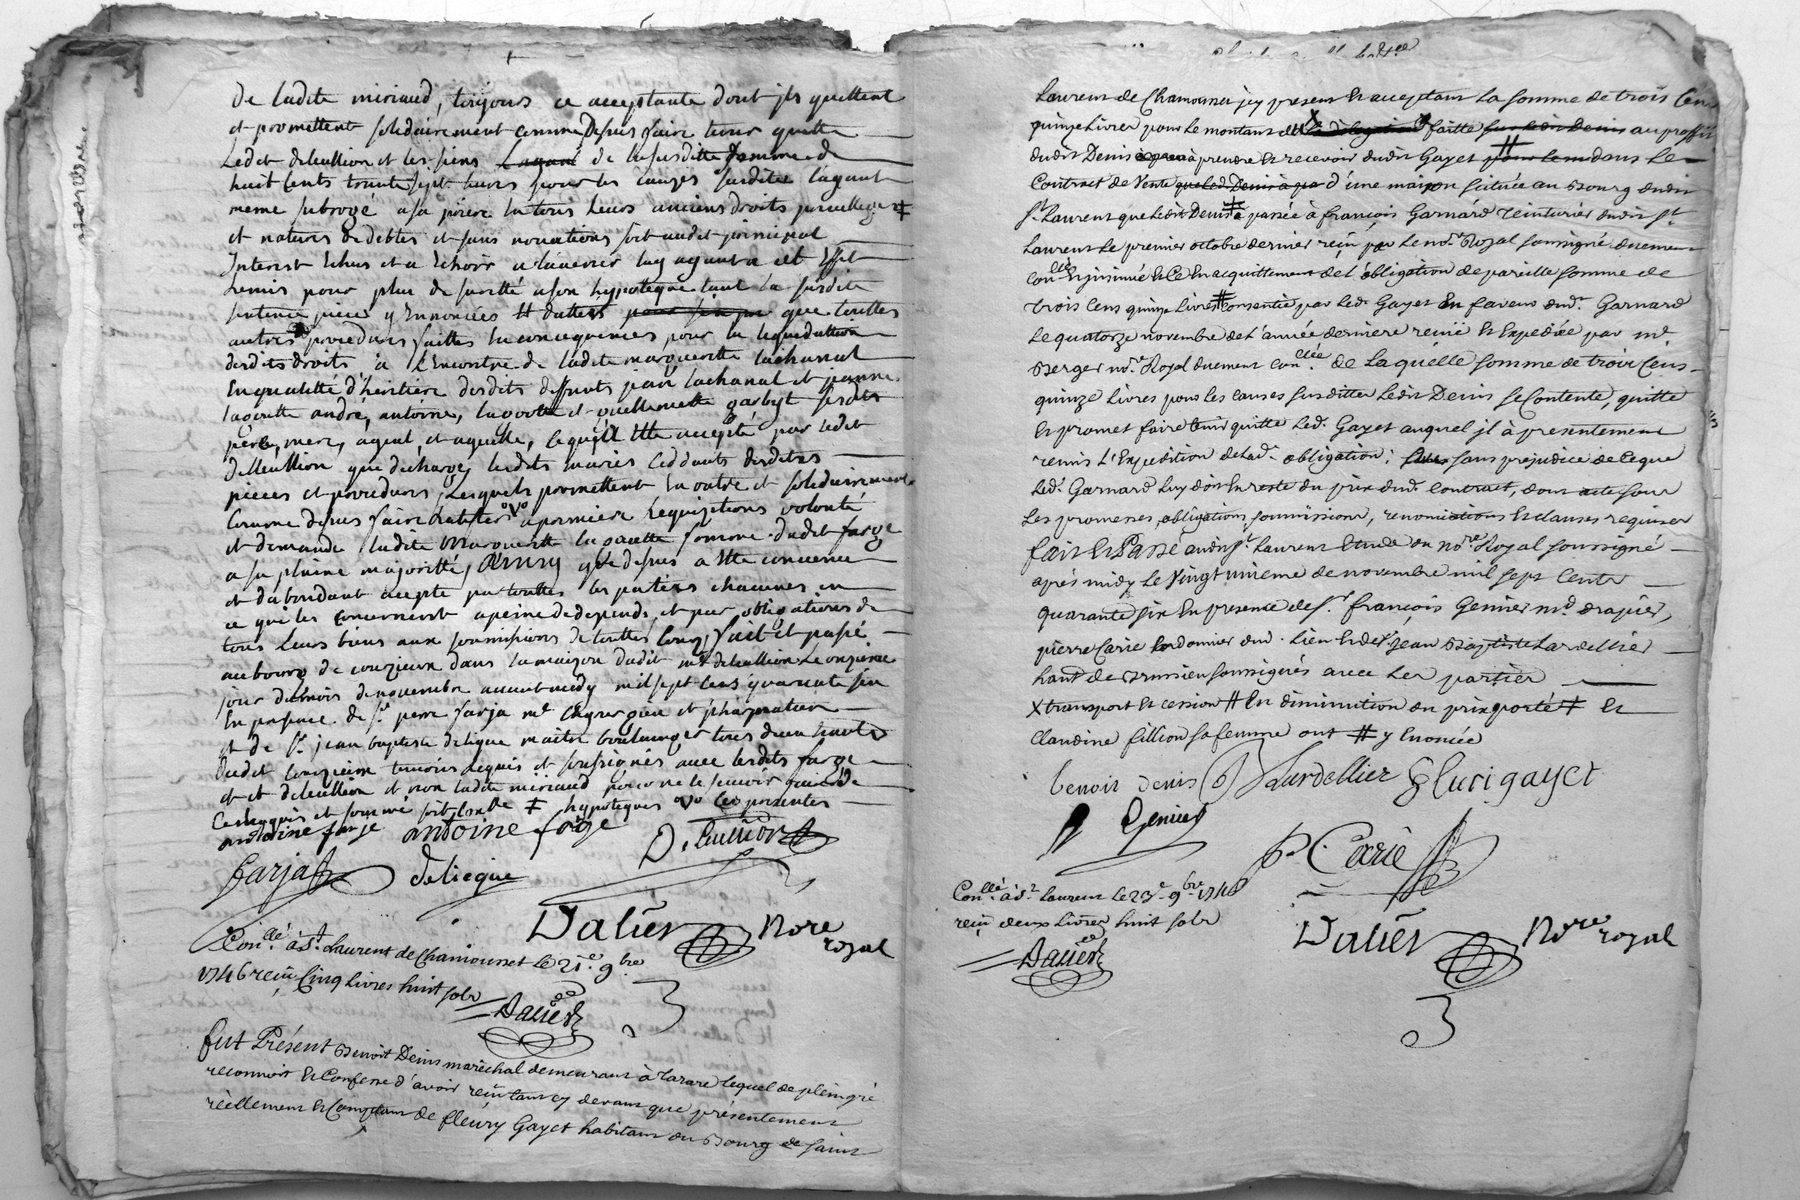 De ladite miriaud, toujours ce acceptante dont ils quittent
et promettent solidairement comme Depuis faire tenir quitte
Ledit deleullion et les siens de la susditte somme de
huit Cents trente sept livres pour les causes susdites layant
meme subrogé a sa priere en tous Leurs anciens droits privilleges #
et natures de debtes et sans novations soit audit principal
Interest Echus et a Echoir a l'avenir luy ayant a cet Effet
Remis pour plus de sureté a son hypoteque tant la susdite
sentence pieces y Ennoncées que touttes
autres procedures faittes en consequences pour la liquidation
desdits droits à L'Encontre de ladite marguerite lachanal
En qualitté d'heritiere desdits deffunts jean lachanal et jeanne
lagoutte andré, antoine,
pere, mere, ayeul, et ayeulle, ce qu'il Ette accepté par ledit
deleullion qui decharge lesdits mariés Ceddants desdites
pieces et procedures, Lesquels promettent En outre et solidairement
Comme depuis faire Ratifier a premiere requizitions volonté
et demande ladite Marguerite lagoutte femme dudit farge
a sa pleine majoritté, que depuis a Ette convenu
et d'abondant accepté par touttes les parties chacunes en
ce qui les Concernent a peine de depends, et par obligations de
tous leurs biens aux soumissions de touttes Cours, fait et passé
au bourg de couzieux dans la maison dudit mr deleullion Le onzieme
jour du mois de novembre avant midy mil sept Cens quarante six
En presence de Sr pierre farja me Chyrurgien et pharmatien
et de Sr jean baptiste delique maitre boulanger tous deux
dudit temoins Requis et soussignés avec lesdits farge
et deleullion et non ladite miriaud pour ne le scavoir
Ce Enquis et sommé soit Con.lle # hypoteques Ces presentes
antoine farje antoine farge D. Leullion
farja delieque
Dalier Nore royal
Con.llé à St. Laurent de Chamousset le 21e 9bre
1746 reçu Cinq Livres huit sols
Dalier
fut Présent Benoit Denis maréchal demeurant à Tarare lequel de plein gré
reconnoit Et Confesse d'avoir reçu tant cy devant que présentement
réellement Et Comptant de fleury Gayet habitant du Bourg de Saint
Laurent de Chamousset icy présent Et acceptant La Somme de trois Cens
quinze Livres pour Le montant de faitte au proffit
dudit Denis à prendre Et recevoir dudit Gayet dans Le
Contract de Vente d'une maison Scituée au Bourg dudit
St. Laurent que ledit Denis # à passée à françois Garnard teinturier dudit St.
Laurent Le premier octobre dernier reçu par Le nore. Royal Soussigné duement
con.llé Et insinué Et Ce En acquittement de L'obligation de pareille Somme de
trois Cens quinze Livres # Consentie par led. Gayet En faveur dud. Garnard
Le quatorze novembre de L'année derniere reçuë Et Expediée par me.
Berger nore. Royal duement con.llée. de Laquelle Somme de trois Cens
quinze Livres pour Les Causes Susdittes Ledit Denis Se Contente, quitte
Et promet faire tenir quitte Led. Gayet auquel jl à presentement
remis L'Expedition de Lad. obligation; sans prejudice de Ceque
Led. Garnard Luy doit En reste du prix dud. Contract, dont acte Sous
Les promesses, obligations, Soumissions, renonciations Et clauses requises
fait Et Passé audit St. Laurent Etude du nore. Royal Soussigné
après midy Le Vingt unieme de novembre mil Sept Cents
quarante Six En presence de Sr. françois Genier md. drapier,
pierre Carie Cordonnier dud. Lieu Et de Sr. jean Baptiste Lardellier
habt. de Soussignés avec Les parties
X transport Et cession # En diminution du prix porté # Et
Claudine fillion Sa femme ont # y Enoncée
benoit denis Lardellier fleuri gayet
Genier
P. Carié
Con.llé à St. Laurent le 23e 9bre 1746
reçu deux Livres huit sols
Dalier
Dalier Nore royal